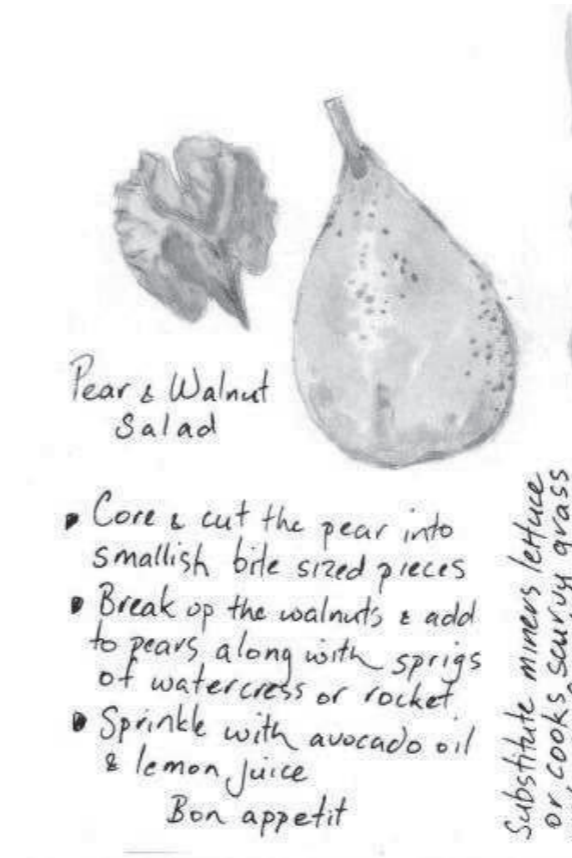 Pear & Walnut
Salad
• Core & cut the pear into
smallish bite sized pieces
• Break up the walnuts & add
to pears along with sprigs
of watercress or rocket
• Sprinkle with avocado oil
& lemon juice
Bon appetit
Substitute miners lettuce
or cooks scurvy grass